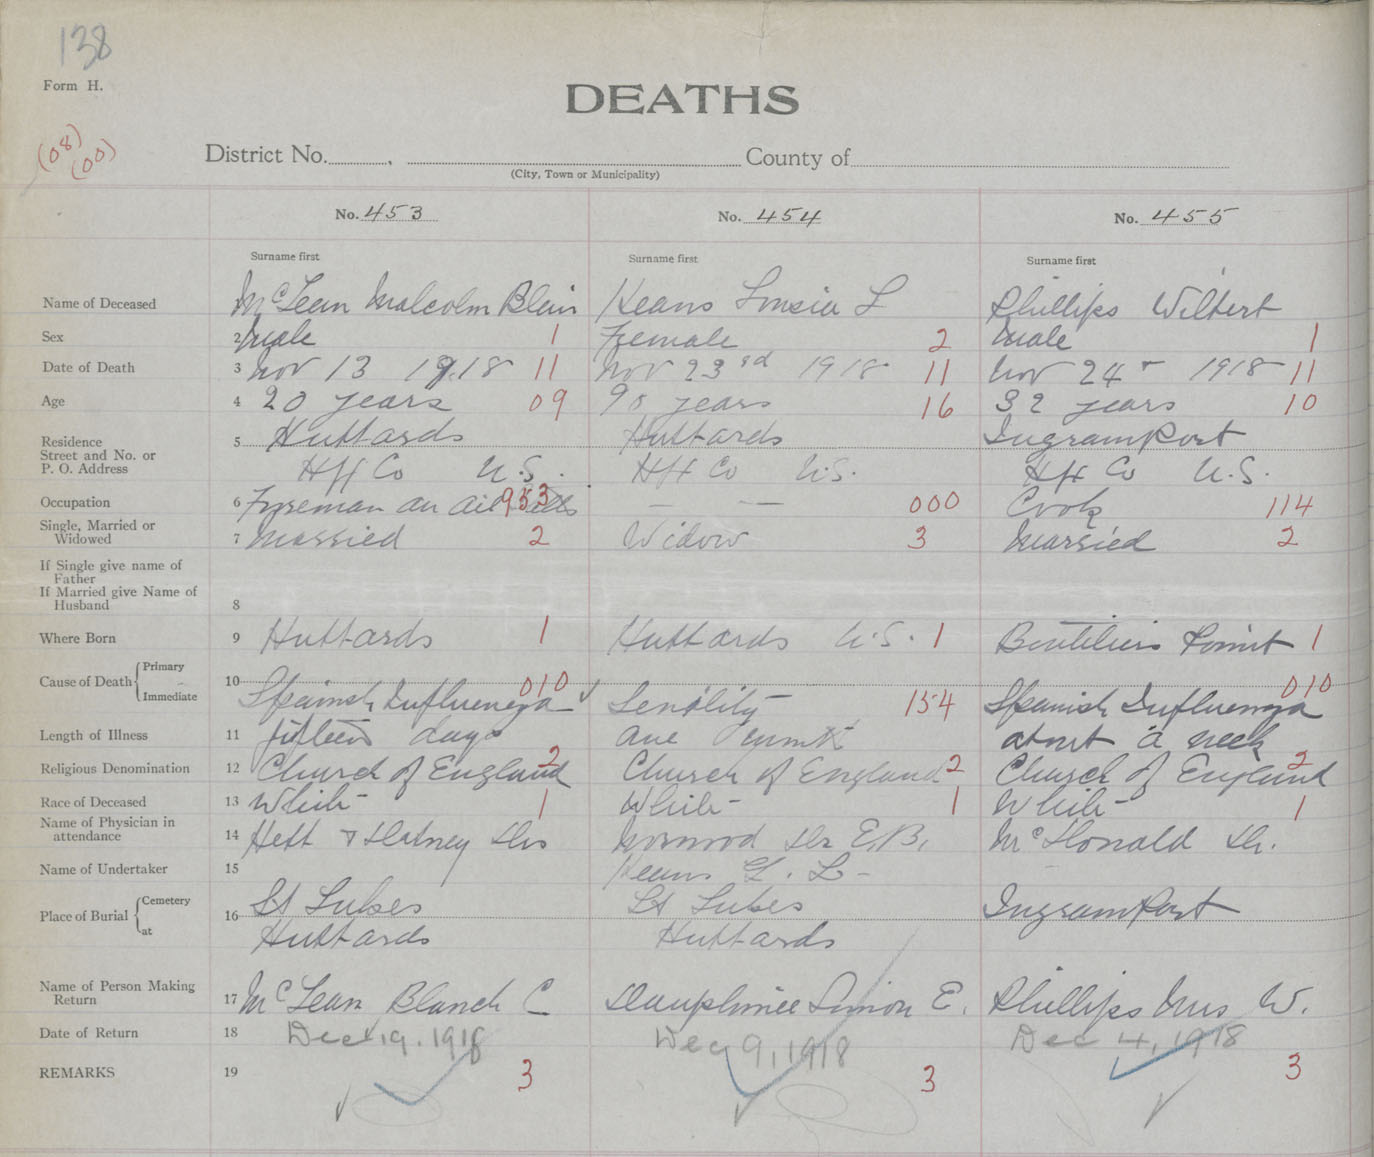 138
Form H.
DEATHS
(08)
(00)
District No. , County of
(City, Town or Municipality)
No. 453 No. 454 No. 455
Surname first Surname first Surname first
Name of Deceased McLean Malcolm Blair Keans L Phillips Wilbert
Sex 2 Male 1 Female 2 Male 1
Date of Death 3 Nov 13 1918 11 Nov 23rd 1918 11 Nov 24 1918 11
Age 4 20 years 09 90 years 16 32 years 10
Residence 5 Hubbards Hubbards IngramPort
Street and No. or
P. O. Address Hfx Co N.S. Hfx Co N.S. Hfx Co N.S.
Occupation 6 953 — — 000 Cook 114
Single, Married or
Widowed 7 Married 2 Widow 3 Married 2
If Single give name of
Father
If Married give Name of
Husband 8
Where Born 9 Hubbards 1 Hubbards N.S. 1 Boutiliers Point 1
Cause of Death { Primary
Immediate 10 Spanish Influenza 010 Senility 154 Spanish Influenza 010
Length of Illness 11 fifteen days one month about a week
Religious Denomination 12 Church of England 2 Church of England 2 Church of England 2
Race of Deceased 13 White 1 White 1 White 1
Name of Physician in
attendance 14 Drs Dr E.B. McDonald Dr.
Name of Undertaker 15 Keans L.
Place of Burial { Cemetery 16 St Lukes St Lukes IngramPort
at Hubbards Hubbards
Name of Person Making
Return 17 McLean Blanch C Dauphinee Simon E. Phillips Mrs W.
Date of Return 18 Dec 19, 1918 Dec 9, 1918 Dec 4, 1918
REMARKS 19 3 3 3